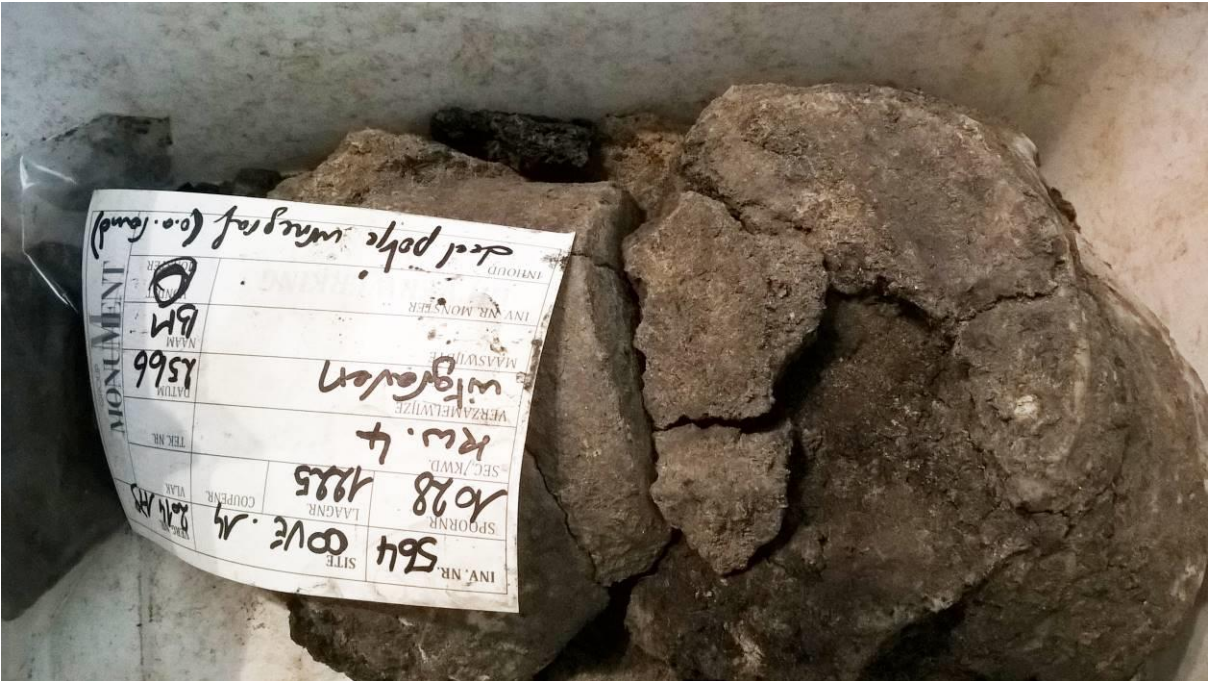 INV. NR. 564 SITE OOVE .14
SPOORNR. 1028 LAAGNR. 1225 COUPENR. VLAK
SEC./KWD. KW. 4 TEK NR.
VERZAMELWIJZE uitgraven DATUM
MAASWIJDTE NAAM BM
INV. NR. MONSTER
INHOUD deel potje urnegraf (o.a. rand)
MONUMENT